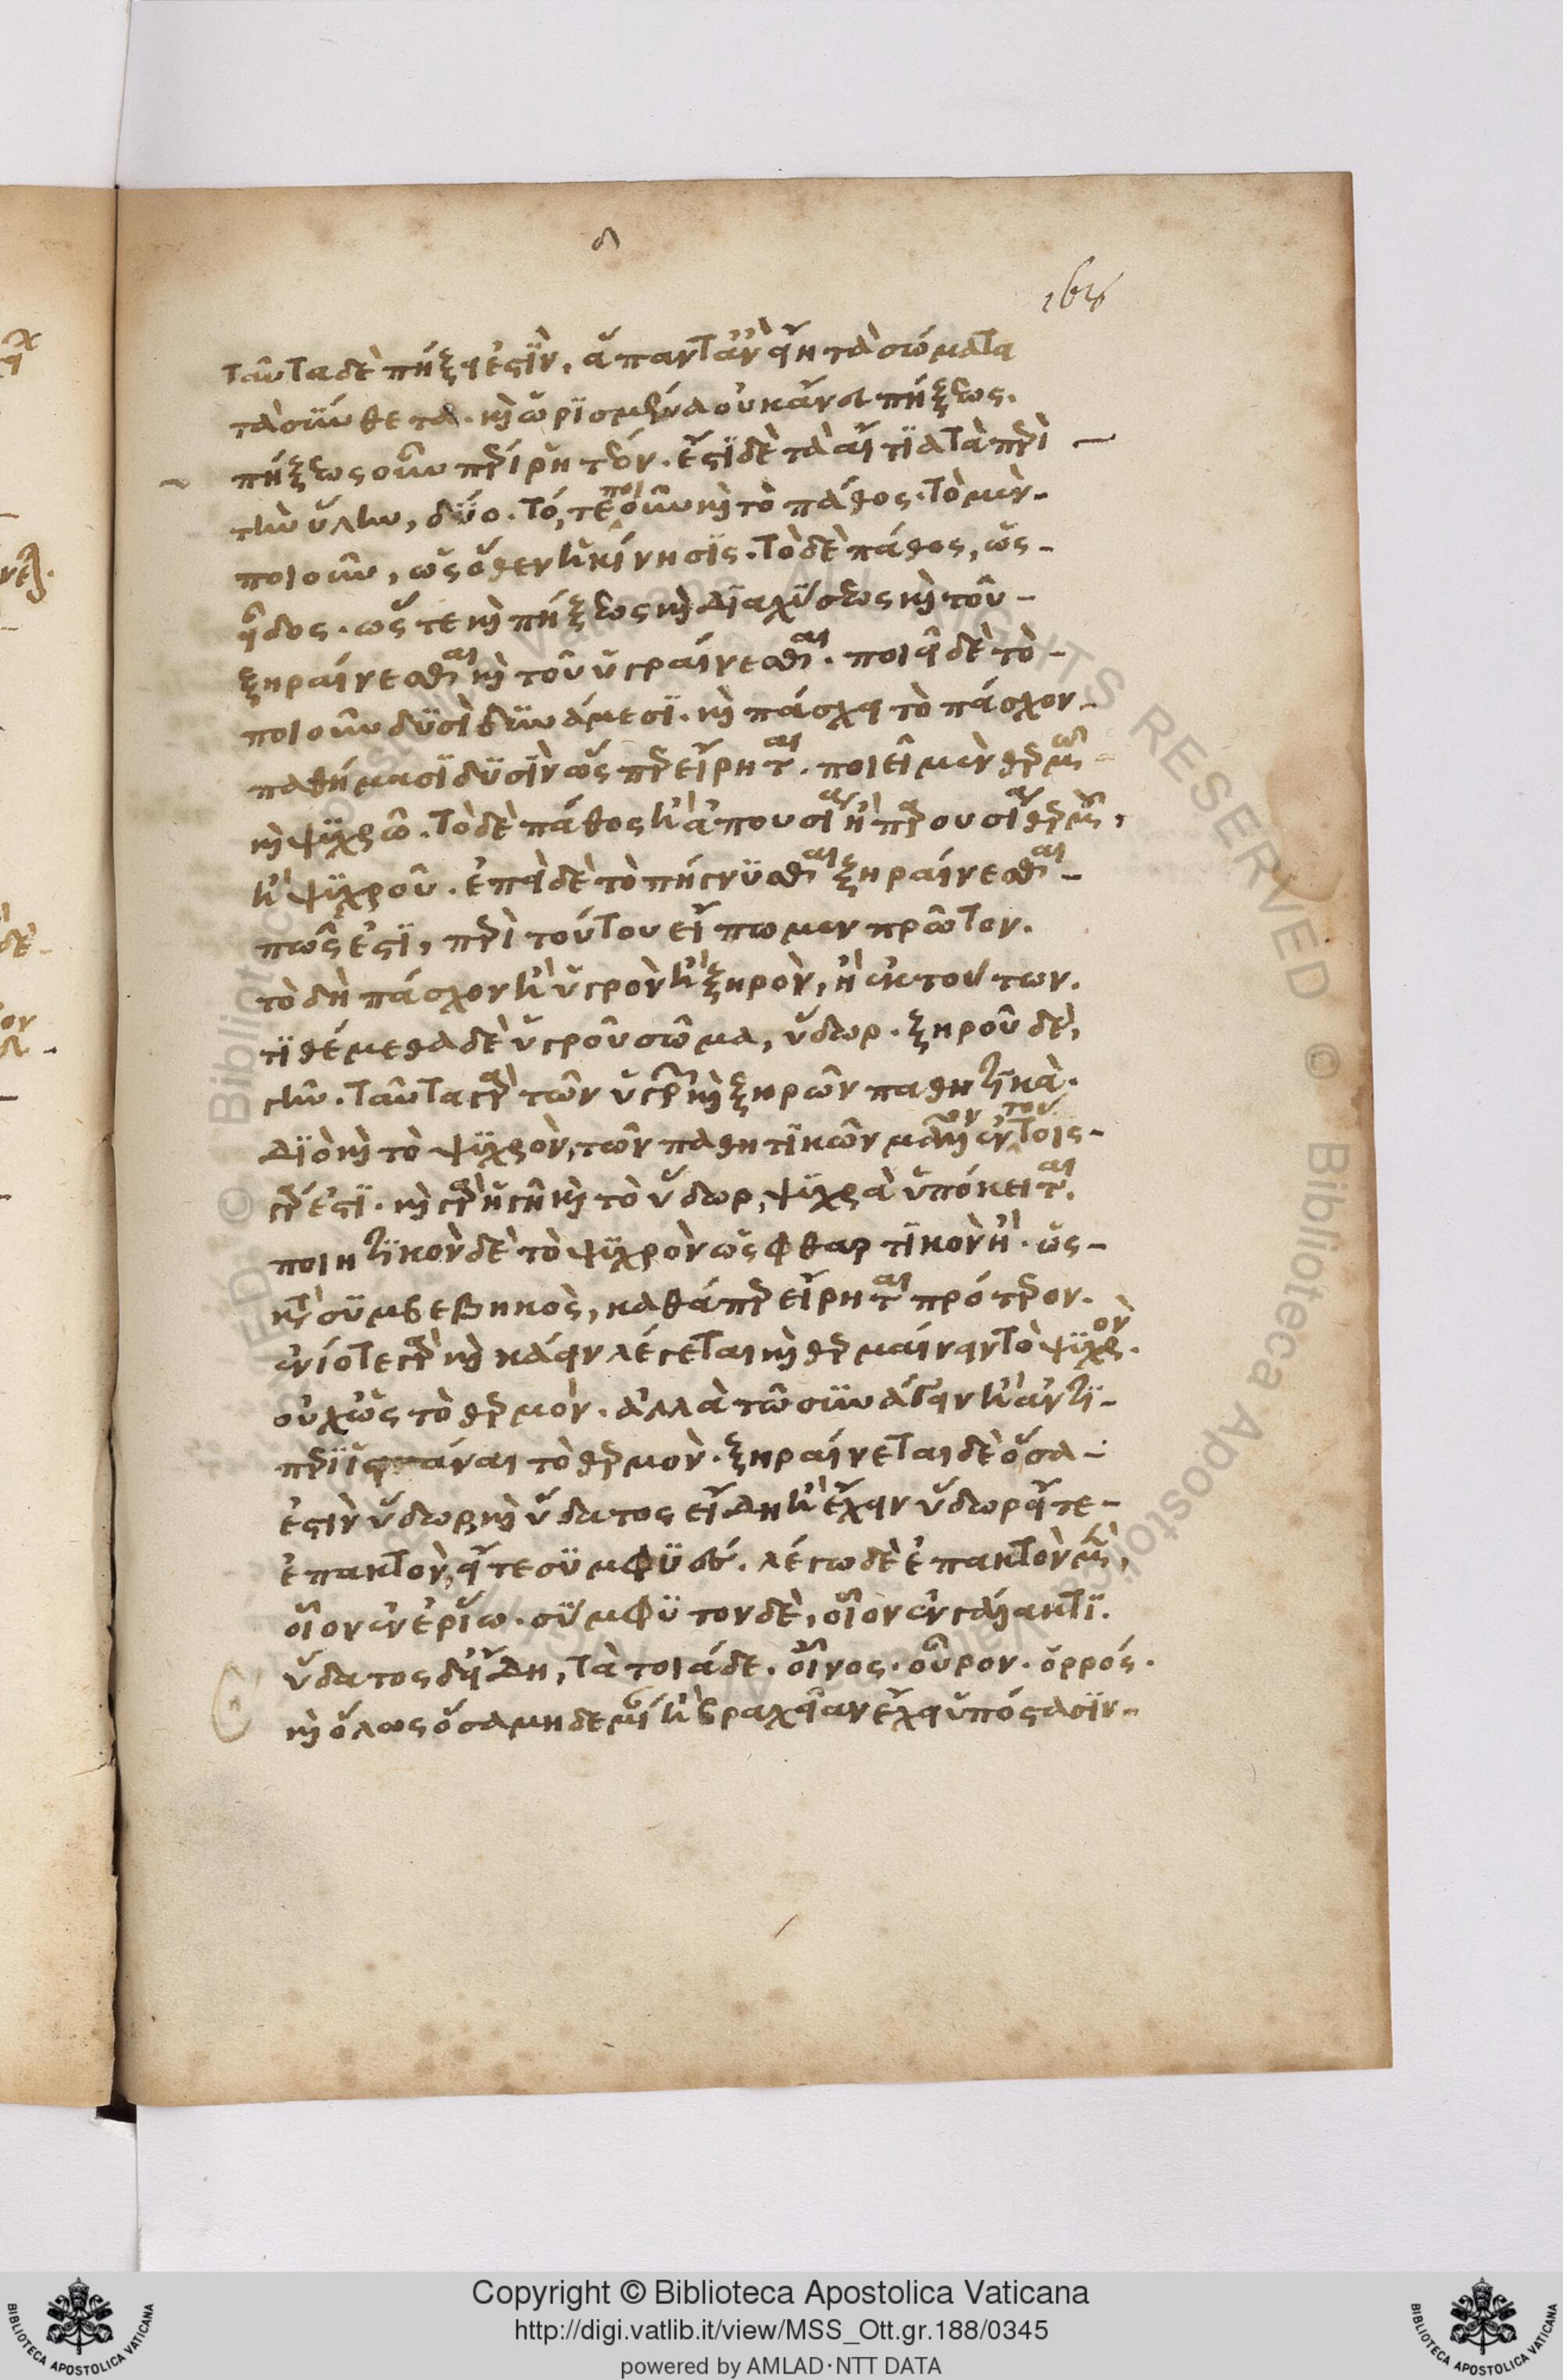 δ
164
ταῦτα δὲ πήξει ἐστὶν, ἅπαντ' ἂν εἴη τὰ σώματα
τὰ σύνθετα. καὶ ὡρισμένα οὐκ ἄνευ πήξεως.
πήξεως οὖν περὶ ῥητέον. ἔστι δὲ τὰ αἴτια τὰ περὶ
τὴν ὕλην, δύο. τό, τε ποιοῦν καὶ τὸ πάθος. τὸ μὲν
ποιοῦν, ὡς ὅθεν ἡ κίνησις. τὸ δὲ πάθος, ὡς
εἶδος. ὥστε καὶ πήξεως καὶ διαχύσεως καὶ τοῦ
ξηραίνεσθαι καὶ τοῦ ὑγραίνεσθαι. ποιεῖ δὲ τὸ
ποιοῦν δυσὶ δυνάμεσι. καὶ πάσχει τὸ πάσχον
παθήμασι δυσὶν ὡς περ εἴρηται. ποιεῖ μὲν θερμῶ
καὶ ψυχρῶ. τὸ δὲ πάθος ἢ ἀπουσίαν ἢ παρουσίαν θερμοῦ,
ἢ ψυχροῦ. ἐπεὶ δὲ τὸ πήγνυσθαι ξηραίνεσθαι
πῶς ἐστι, περὶ τούτου εἴπωμεν πρῶτον.
τὸ δὴ πάσχον ἢ ὑγρὸν ἢ ξηρὸν, ἢ ἐκ τούτων.
τιθέμεθα δὲ ὑγροῦ σῶμα, ὕδωρ. ξηροῦ δὲ,
γῆν. ταῦτα γὰρ τῶν ὑγρῶν καὶ ξηρῶν παθητικά.
διὸ καὶ τὸ ψυχρὸν, τῶν παθητικῶν μᾶλλον ἐν τούτοις
γάρ ἐστι. καὶ γὰρ ἡ γῆ καὶ τὸ ὕδωρ, ψυχρὰ ὑπόκειται.
ποιητικὸν δὲ τὸ ψυχρὸν ὡς φθαρτικὸν ἢ. ὡς
κατὰ συμβεβηκὸς, καθάπερ εἴρηται πρότερον.
ἐνίοτε γὰρ καὶ κάειν λέγεται καὶ θερμαίνειν τὸ ψυχρόν.
οὐχ ὡς τὸ θερμόν. ἀλλὰ τῶ συνάγειν ἢ ἀντι
περιϊστάναι τὸ θερμόν. ξηραίνεται δὲ ὅσα
ἐστὶν ὕδωρ καὶ ὕδατος εἴδη ἢ ἔχει ὕδωρ εἴ τε
ἐπακτὸν, εἴ τε σύμφυτον. λέγω δὲ ἐπακτὸν μὲν,
οἷον ἐν ἐρίω. σύμφυτον δὲ, οἷον ἐν γάλακτι.
ὕδατος δ' εἴδη, τὰ τοιάδε. οἶνος. οὖρον. ὀρρός.
καὶ ὅλως ὅσα μηδεμίαν ἢ βραχεῖαν ἔχει ὑπόστασιν
Copyright © Biblioteca Apostolica Vaticana
http://digi.vatlib.it/view/MSS_Ott.gr.188/0345
powered by AMLAD·NTT DATA
BIBLIOTECA APOSTOLICA VATICANA
BIBLIOTECA APOSTOLICA VATICANA